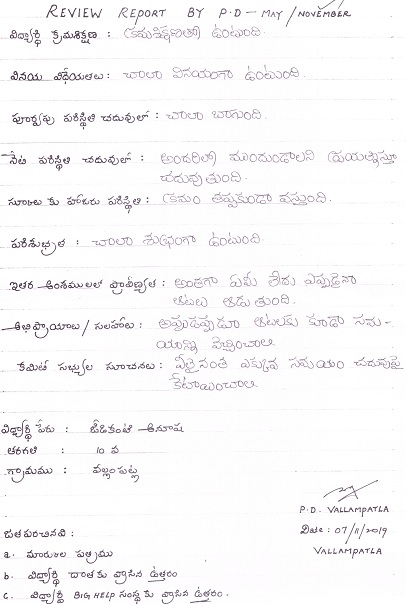 REVIEW REPORT BY P.D - MAY / NOVEMBER
విద్యార్థి క్రమశిక్షణ : క్రమశిక్షణతో ఉంటుంది.
వినయ విధేయతలు : చాలా వినయంగా ఉంటుంది.
పూర్వపు పరిస్థితి చదువులో : చాలా బాగుంది.
నేటి పరిస్థితి చదువులో : అందరిలో ముందుండాలని ప్రయత్నిస్తూ
చదువుతుంది.
స్కూలు కు హాజరు పరిస్థితి : క్రమం తప్పకుండా వస్తుంది.
పరిశుభ్రత : చాలా శుభ్రంగా ఉంటుంది.
ఇతర అంశములలో ప్రావీణ్యత : అంతగా ఏమీ లేదు ఎప్పుడైనా
ఆటలు ఆడుతుంది.
అభిప్రాయాలు / సలహాలు : అప్పుడప్పుడూ ఆటలకు కూడా సమ-
యాన్ని వెచ్చించాలి
కమిటి సభ్యుల సూచనలు : వీలైనంత ఎక్కువ సమయం చదువుపై
కేటాయించాలి
విద్యార్థి పేరు : జీడికంటి అనూష
తరగతి : 10 వ
గ్రామము : వల్లంపట్ల
P.D. VALLAMPATLA
Date : 07/11/2019
VALLAMPATLA
జతపరచినవి :
a. మార్కుల పత్రము
b. విద్యార్థి దాతకు వ్రాసిన ఉత్తరం
c. విద్యార్థి BIG HELP సంస్థ కు వ్రాసిన ఉత్తరం.